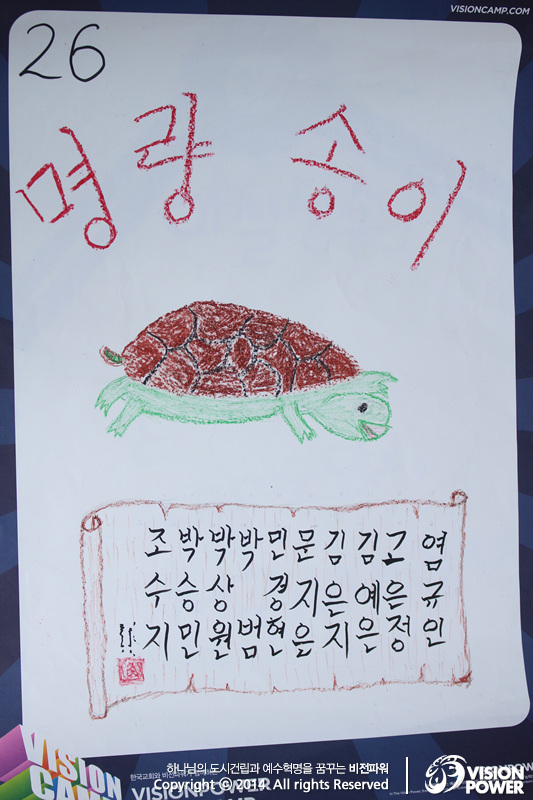 VISIONCAMP.COM
26
명랑 송이
염규인
고은정
김예은
김은지
문지은
민경현
박범
박상원
박승민
조수지
VISION
CAMP
하나님의 도시건립과 예수혁명을 꿈꾸는 비전파워
Copyright ⓒ 2014. All rights Reserved
VISION
POWER